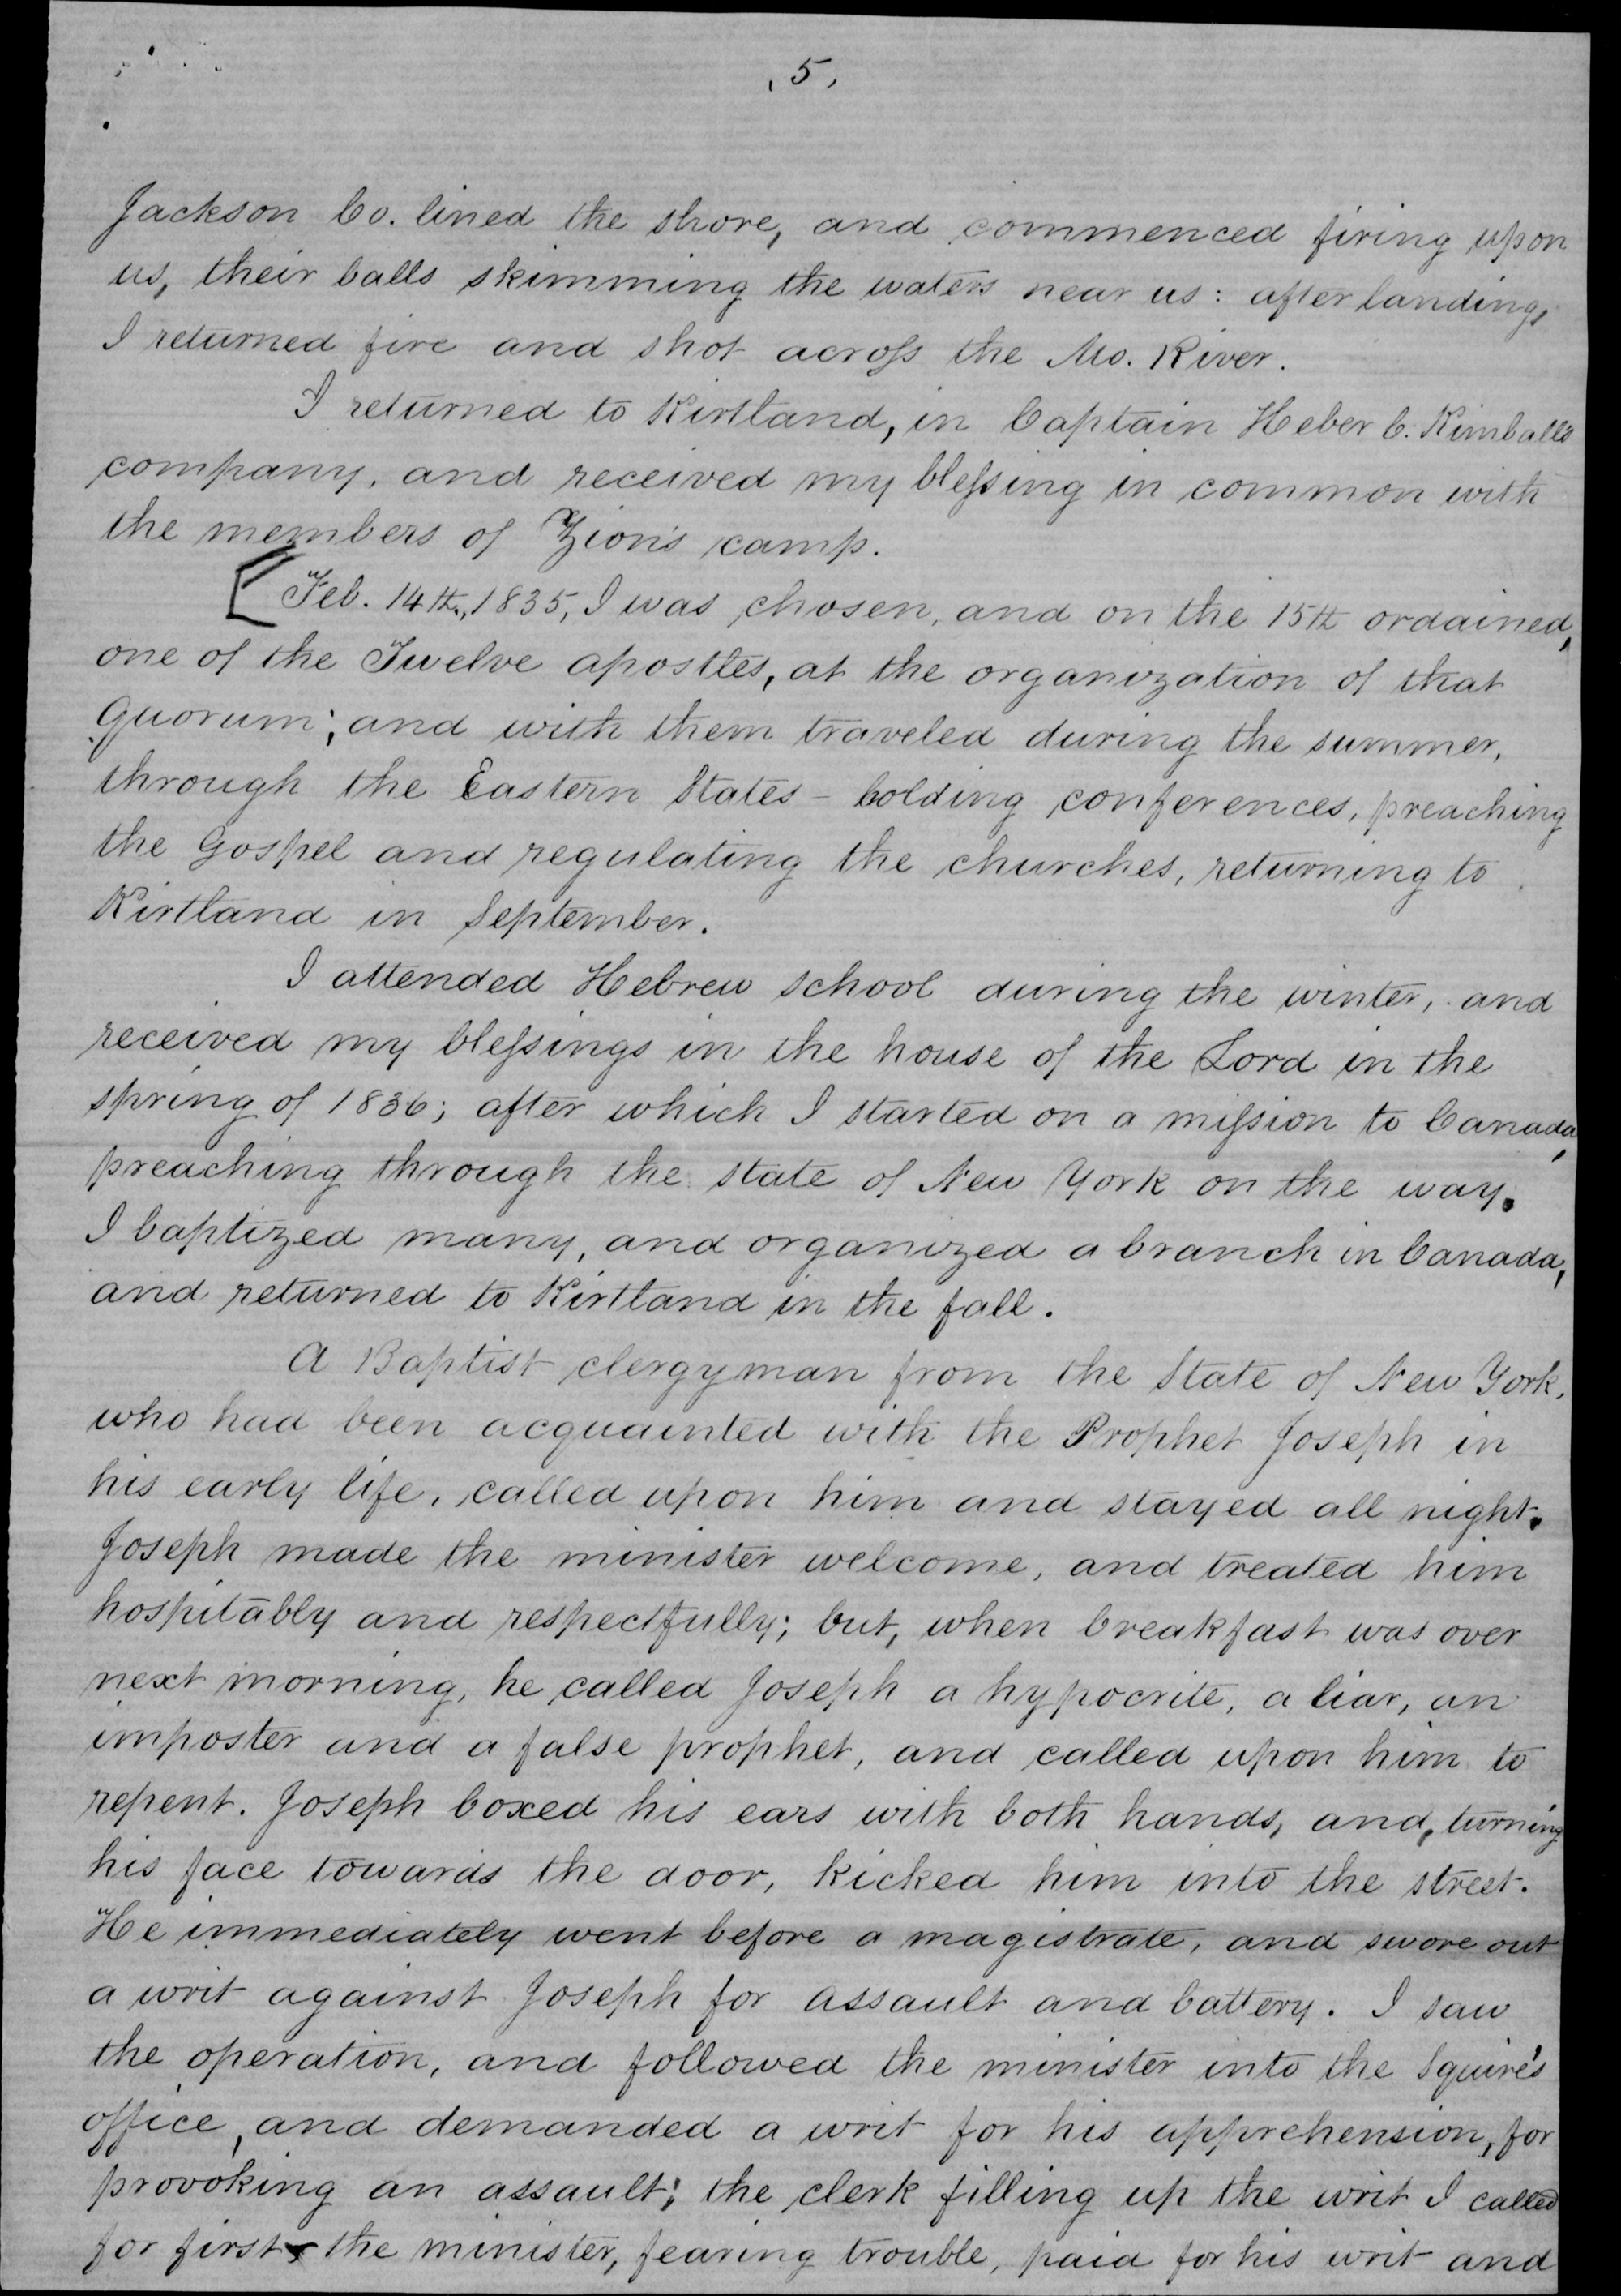 5,
Jackson Co. lined the shore, and commenced firing upon
us, their balls skimming the waters near us: after landing,
I returned fire and shot across the Mo. River.
I returned to Kirtland, in Captain Heber C. Kimball's
company, and received my blessing in common with
the members of Zion's camp.
[Feb. 14th., 1835, I was chosen, and on the 15th ordained,
one of the Twelve apostles, at the organization of that
Quorum; and with them traveled during the summer,
through the Eastern States – holding conferences, preaching
the Gospel and regulating the churches, returning to
Kirtland in September.
I attended Hebrew school during the winter, and
received my blessings in the house of the Lord in the
spring of 1836; after which I started on a mission to Canada,
preaching through the state of New York on the way.
I baptized many, and organized a branch in Canada,
and returned to Kirtland in the fall.
A Baptist clergyman from the State of New York,
who had been acquainted with the Prophet Joseph in
his early life, called upon him and stayed all night.
Joseph made the minister welcome, and treated him
hospitably and respectfully; but, when breakfast was over
next morning, he called Joseph a hypocrite, a liar, an
imposter and a false prophet, and called upon him to
repent. Joseph boxed his ears with both hands, and, turning
his face towards the door, kicked him into the street.
He immediately went before a magistrate, and swore out
a writ against Joseph for assault and battery. I saw
the operation, and followed the minister into the Squire's
office, and demanded a writ for his apprehension, for
provoking an assault; the clerk filling up the writ I called
for first, the minister, fearing trouble, paid for his writ and